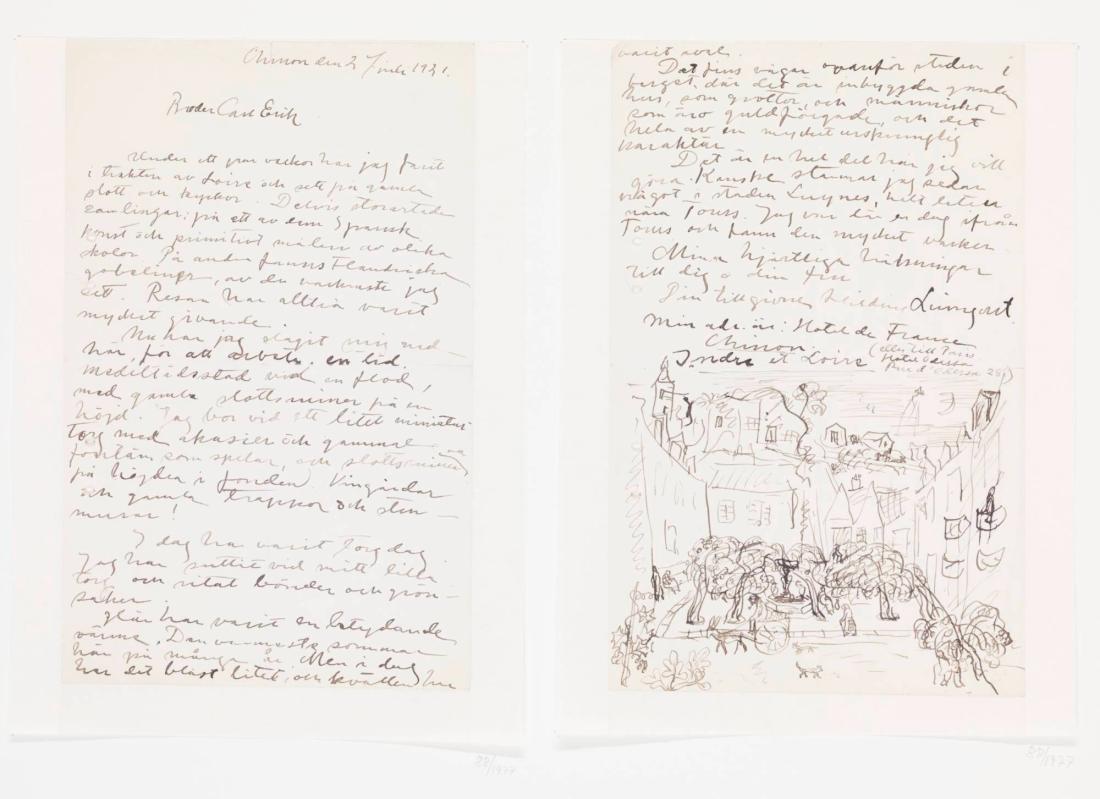 Chinon den 2 Juli 1921.
Broder Carl Erik
Under ett par veckor har jag farit
i trakten av Loire och sett på gamla
slott och kyrkor. Delvis storartade
samlingar: på ett av dem Spansk
konst och primitivt måleri av olika
skolor. På andra funnos Flandriska
gobelinger, av de vackraste jag
sett. Resan har alltså varit
mycket givande.
Nu har jag slagit mig ned
här, för att arbeta en tid.
Medeltidsstad vid en flod,
med gamla slottsruiner på en
höjd. Jag bor vid ett litet
torg med akasier och gammal
fontän som spelar, och slottsruinen
på höjden i fonden. Vingårdar
och gamla trappor och sten-
murar!
I dag har varit torgdag
Jag har suttit vid mitt lilla
torg och ritat bönder och grön-
saker.
Här har varit en betydande
värme. Den varmaste sommar
här på många år. Men i dag
har det blåst litet, och kvällen har
varit sval.
Det fins vägar ovanför staden i
berget där det är inbyggda gamla
hus, som grottor, och människor
som äro guldfärgade, och det
hela av en mycket ursprunglig
karaktär
Det är en hel del här jag vill
göra. Kanske stannar jag sedan
något i staden Luynes, helt litet
nära Tours. Jag var där en dag ifrån
Tours och fann den mycket vacker.
Mina hjärtliga hälsningar
till dig o din fru
Din tillgivne Hilding Linnqvist.
Min adr. är: Hotel de France
Chinon.
Indre et Loire
(eller till Paris
Hotel Odessa
Rue d'Odessa 28)
88/1977
88/1977